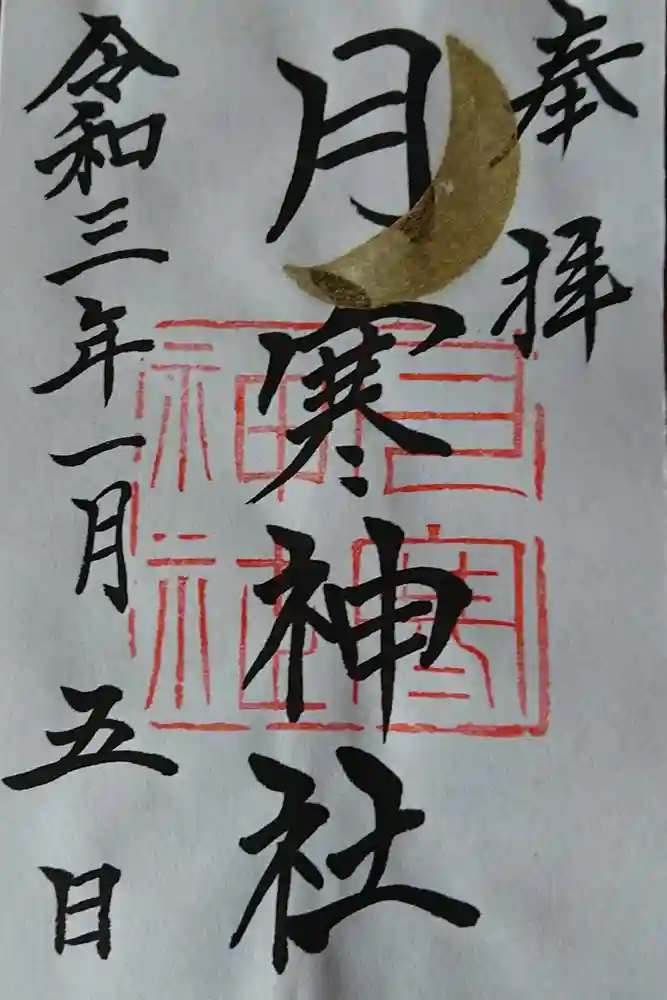 奉拝
月寒神社
令和三年一月五日
月寒神社